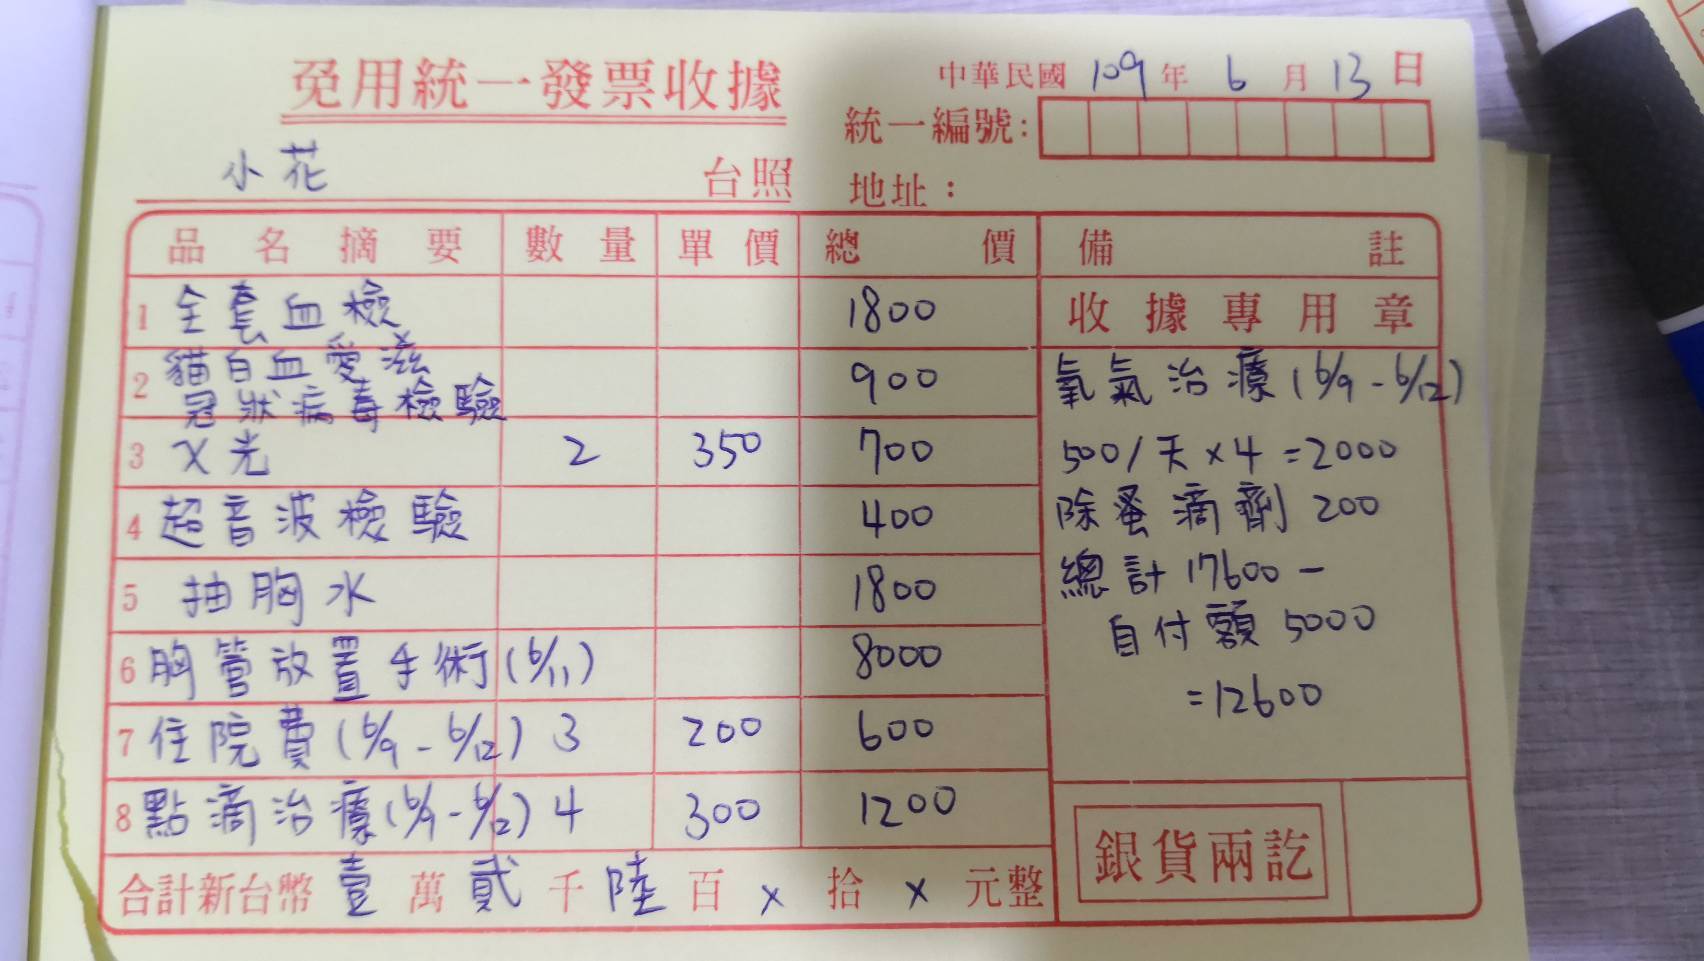 免用統一發票收據
中華民國 109 年 6 月 13 日
統一編號:
小花 台照
地址：
品名摘要 數量 單價 總價 備註
1 全套血檢 1800
收據專用章
2 貓白血愛滋
冠狀病毒檢驗 900
3 X光 2 350 700
4 超音波檢驗 400
5 抽胸水 1800
6 胸管放置手術(6/11) 8000
7 住院費(6/9-6/12) 3 200 600
8 點滴治療(6/9-6/12) 4 300 1200
氧氣治療(6/9-6/12)
500/天×4=2000
除蚤滴劑 200
總計 17600-
自付額 5000
=12600
合計新台幣 壹 萬 貳 千 陸 百 x 拾 x 元整
銀貨兩訖